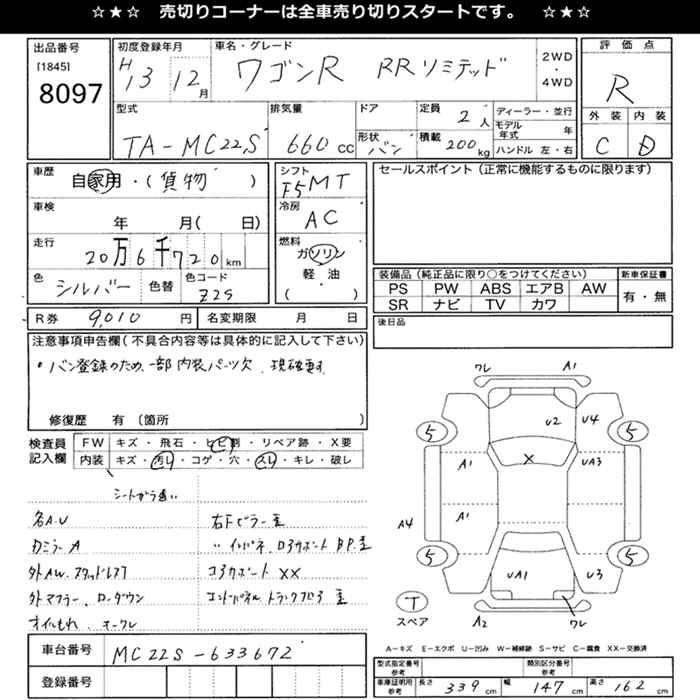 ☆★☆ 売切りコーナーは全車売り切りスタートです。 ☆★☆
出品番号
[1845]
8097
初度登録年月
H 13 12 月
車名・グレード
ワゴンR RRリミテッド
2WD
・
4WD
評価点
R
外装 内装
C D
型式
TA-MC22S
排気量
660 CC
ドア
形状 バン
定員 2 人
積載 200 kg
ディーラー・並行
モデル年式 年
ハンドル 左・右
車歴
自家用・(貨物)
車検
年 月( 日)
走行
20万6千720km
色
シルバー
色替
色コード
Z2S
シフト
F5MT
冷房
AC
燃料
ガソリン
軽・油
( )
セールスポイント(正常に機能するものに限ります)
装備品(純正品に限り○をつけてください)
PS PW ABS エアB AW
SR ナビ TV カワ
新車保証書
有・無
R券 9,010 円
名変期限 月 日
後日品
注意事項申告欄(不具合内容等は具体的に記入して下さい)
・バン登録のため、一部内装パーツ欠、現確要す
修復歴 有(箇所 )
検査員
記入欄
FW キズ・飛石・ヒビ割・リペア跡・X要
内装 キズ・汚レ・コゲ・穴・スレ・キレ・破レ
シートガラ違い
各A.U
右Fピラー歪
カミラーA
〃インパネ、コアサポート
外AW.スタッドレス
コアサポート XX
外マフラー、ローダウン
エンドパネル トランクフロア 歪
オイルもれ
車台番号 MC22S-633672
登録番号
ワレ A1
U2 U4
5 5
A1 X UA3
A1
A4
5 5
UA1 U3
T
スペア
A2 ワレ
A-キズ E-エクボ U-凹み W-補修跡 S-サビ C-腐食 XX-交換済
型式指定番号
参考
類別区分番号
参考
車庫証明用
参考
長さ 339 cm
幅 147 cm
高さ 162 cm